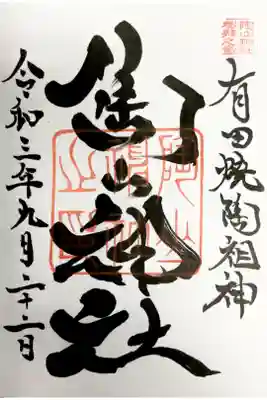 有田焼陶祖神
陶山神社
令和三年九月二十二日
陶山神社